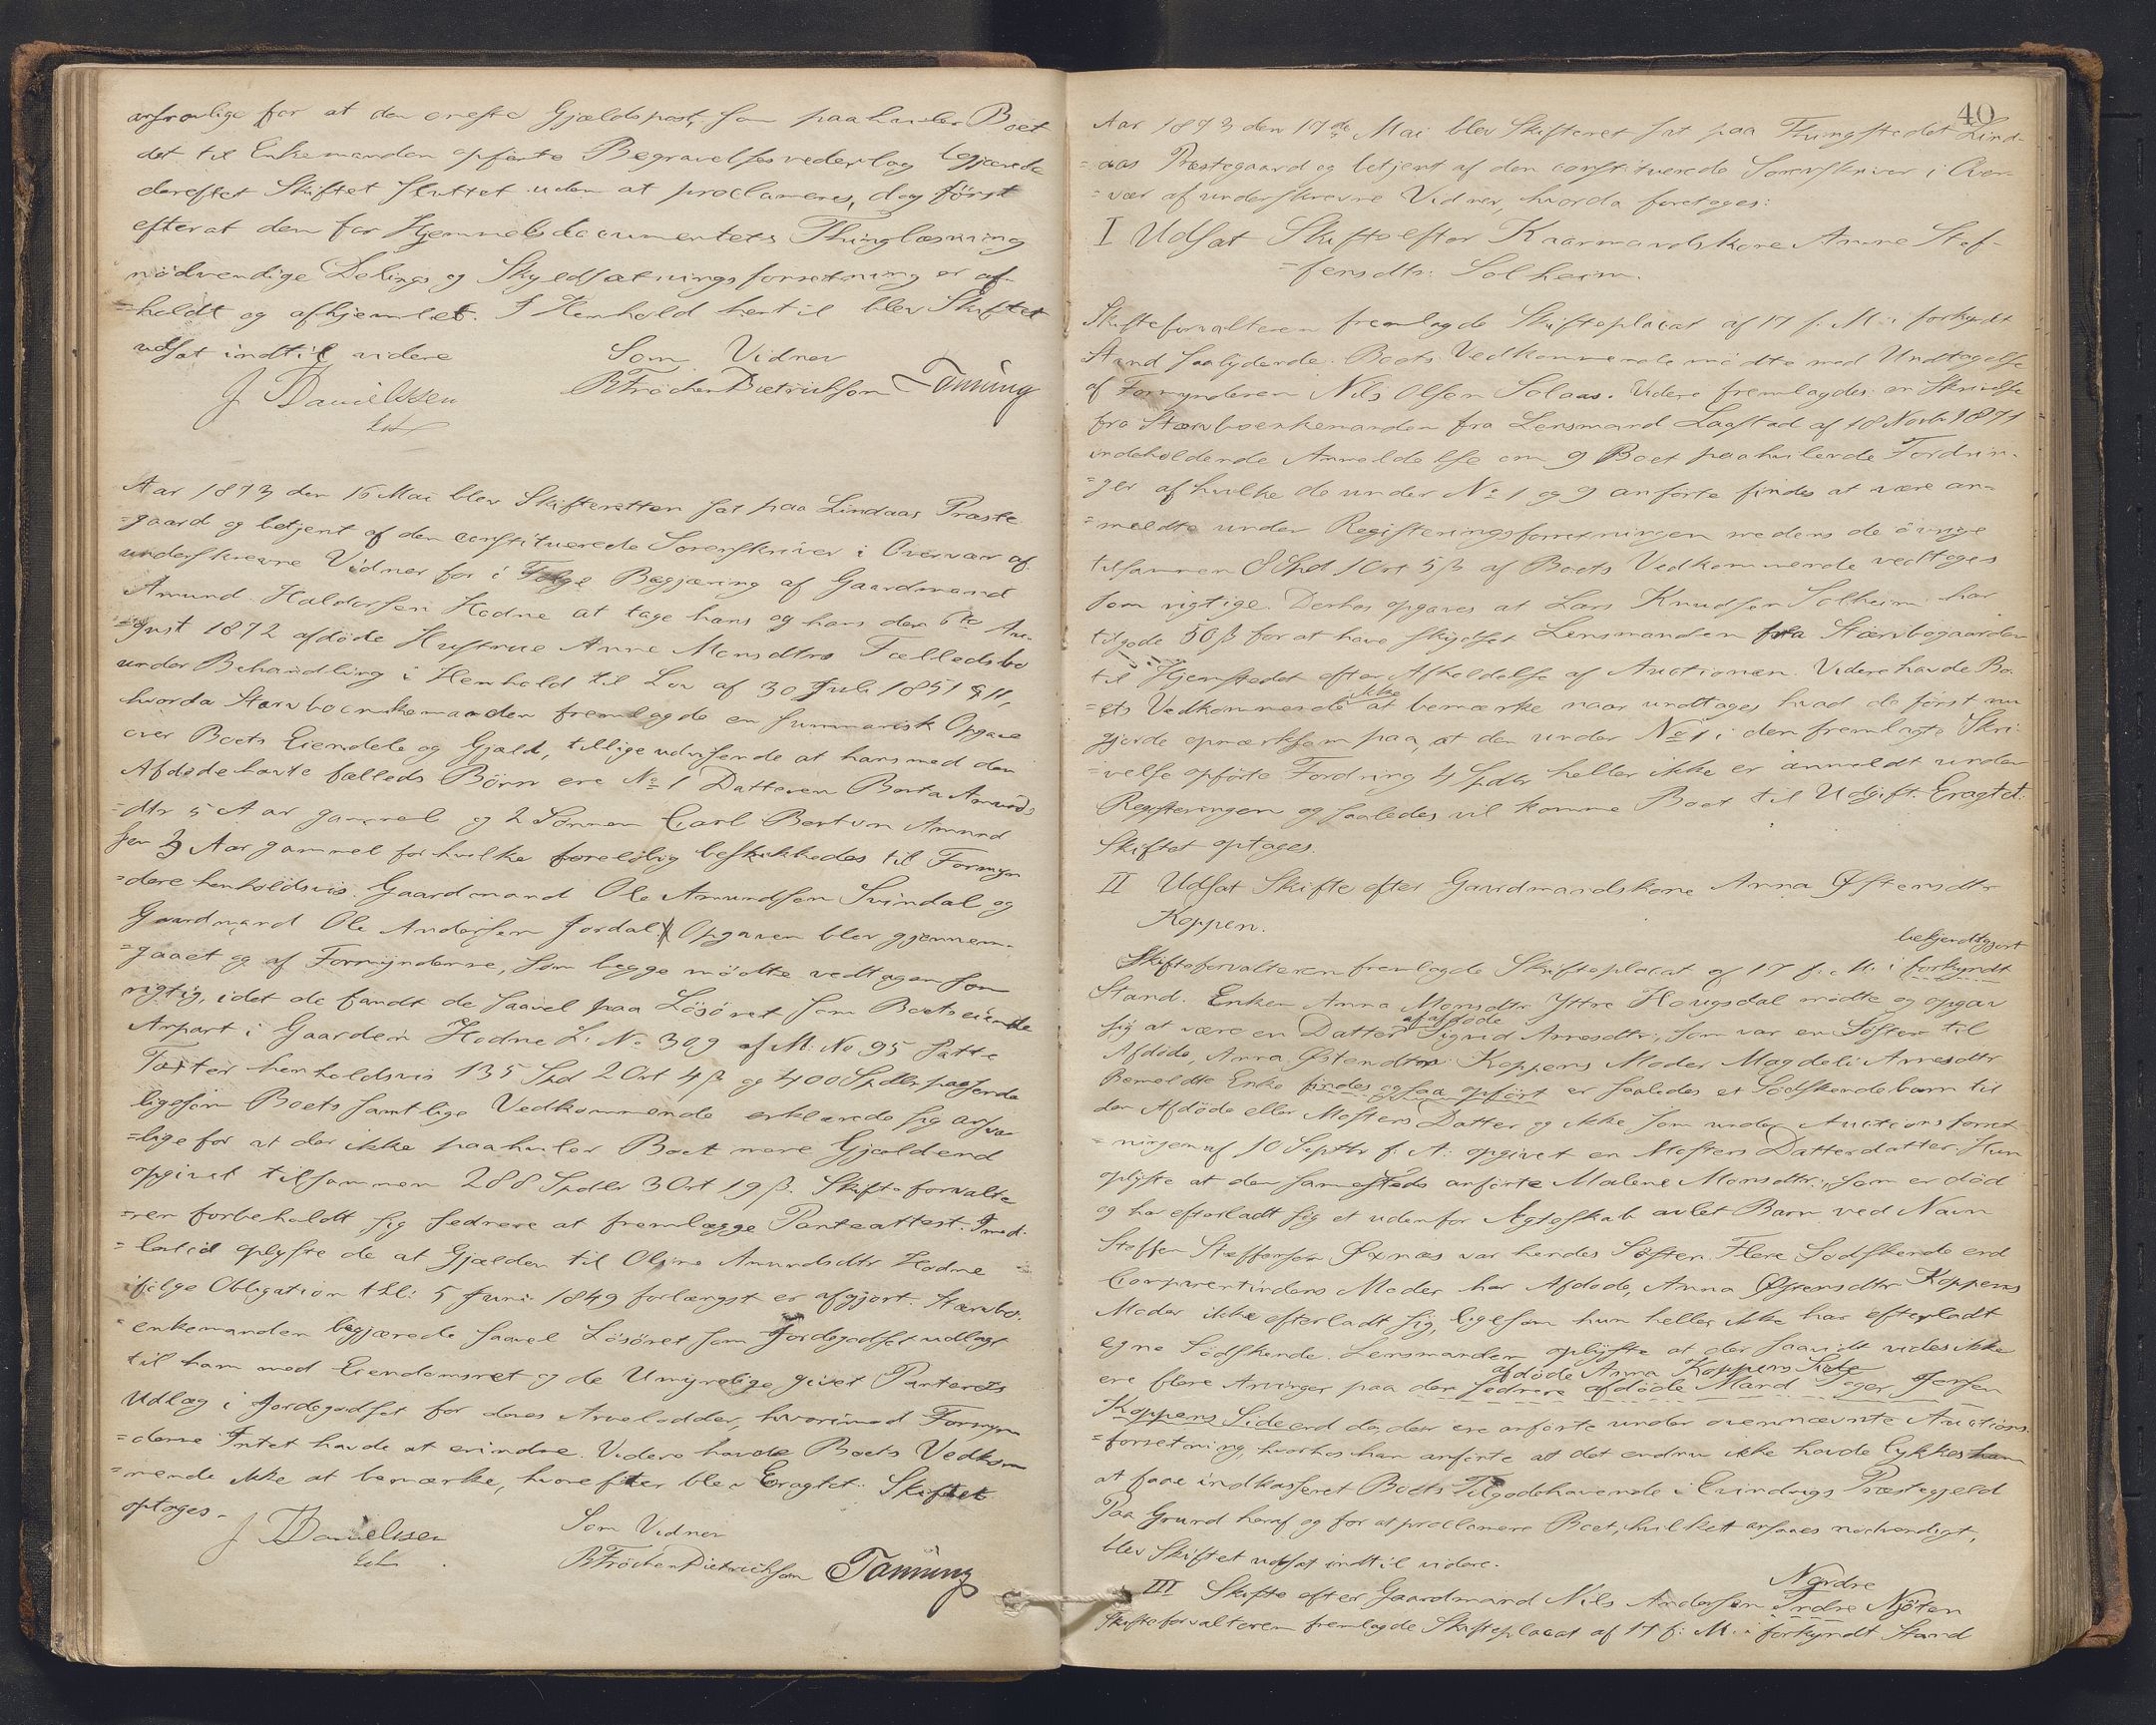 ansvarlige for at den eneste Gjældspost, som paahviler Boet
det til Enkemanden opførte Begravelsesvederlag begjærede
dereftet Skiftet sluttet uden at proclameres, dog først
efterat den for Hjemmelsdocumentets Thinglæsning
nødvendige Delings og Skyldsætningsforretning er af-
=holdt og afhjemlet. I Henhold hertil blev Skiftet
udsat indtil videre
Som Vidner
J Danielssen
Const
B Frøchen Dietrichson Tanning
Aar 1873 den 16 Mai blev Skifteretten sat paa Lindaas Præste
=gaard og betjent af den constituerede Sorenskriver i Overvær af
underskrevne Vidner for i Følge Begjæring af Gaardmand
Amund Haldorsen Hodne at tage hans og hans den 6te Au-
=gust 1872 afdøde Hustrue Anne Monsdtrs Fælledsbo
under Behandling i Henhold til Lov af 30 Juli 1851 § 11,
hvorda Stærvboenkemanden fremlagde en summarisk Opgave
over Boets Eiendele og Gjæld, tillige udvisende at hans med den
Afdøde havte fælleds Børn ere No 1 Datteren Berta Amunds
=dtr 5 Aar gammel og 2 Sønnen Carl Bertun Amund
sen 3 Aar gammel for hvilke foreløbig beskikkedes til Formyn
=dere henholdsvis Gaardmand Ole Amundsen Svindal og
Gaardmand Ole Andersen Jordal. Opgaven blev gjennem-
=gaaet og af Formynderne, som begge mødte vedtagen som
rigtig, idet de fandt de saavel paa Løsøret som Boets eiende
Anpart i Gaarden Hodne L. No 309 af M. No 95 satte
Taxter henholdsvis 135 Spd 2 Ort 4 β og 400 Spdlr passende
ligesom Boets samtlige Vedkommende erklærede sig ansva
=lige for at der ikke paahviler Boet mere Gjæld end
opgivet tilsammen 288 Spdlr 3 Ort 19 β. Skifteforvalte
=ren forbeholdt sig senere at fremlægge Panteattest. Imid-
=lertid oplyste de at Gjælden til Oline Amundsdtr Hodne
ifølge Obligation thl: 5 Juni 1849 forlængst er afgjort. Stærvbo-
=enkemanden begjærede saavel Løsøret som Jordegodset udlagt
til ham med Eiendomsret og de Umyndige givet Panterets
Udlæg i Jordegodset for deres Arvelodder, hvorimod Formyn
=derne Intet havde at erindre. Videre havde Boets Vedkom
=mende ikke at bemærke, hvorefter blev Eragtet: Skiftet
optages.
Som Vidner
J Danielssen
Const
B Frøchen Dietrichson Tanning
40
Aar 1873 den 17de Mai blev Skifteret sat paa Thingstedet Lind-
=aas Præstegaard og betjent af den constituerede Sorenskriver i Over-
=vær af underskrevne Vidner, hvorda foretoges:
I Udsat Skifte efter Kaarmandskone Anne Stef-
=fensdtr. Solheim.
Skifteforvalteren fremlagde Skifteplacat af 17 f. M. i forkyndt
Stand saalydende. Boets Vedkommende mødte med Undtagelse
af Formynderen Nils Olsen Solaas. Videre fremlagdes en Skrivelse
fra Stærvboenkemanden fra Lensmand Laastad af 18 Novb 1871
indeholdende Anmeldelse om 9 Boet paahvilende Fordrin-
=ger af hvilke de under No 1 og 9 anførte findes at være an-
=meldte under Registeringsforretningen medens de øvrige
tilsammen 8 Spd 1 Ort 5 β af Boets Vedkommende vedtages
som rigtige. Derhos opgaves at Lars Knudsen Solheim har
tilgode 50 β for at have skydset Lensmanden fra Stærvbogaarden
til Hjemstedet efter Afholdelse af Auctionen. Videre havde Bo-
ikke
=ets Vedkommende at bemærke naar undtages hvad de først nu
gjorde opmærksom paa, at den under No 1 i den fremlagte Skri-
=velse opførte Fordring 4 Spdlr heller ikke er anmeldt under
Registeringen og saaledes vil komme Boet til Udgift. Eragtet:
Skiftet optages.
II Udsat Skifte efter Gaardmandskone Anna Østensdtr
Koppen.
bekjendtgjort
Skifteforvalteren fremlagde Skifteplacat af 17 f. M. i forkyndt
Stand. Enken Anna Monsdtr Yttre Hougsdal mødte og opgav
af afdøde
sig at være en Datter Sigrid Arnesdtr, som var en Søster til
Afdøde, Anna Østensdtrs Koppens Moder Magdeli Arnesdtr
Bemeldte Enke findes ogsaa opført er saaledes et Sødskendebarn til
den Afdøde eller Mosters Datter og ikke som under Auctionsforret
=ningen af 10 Septbr f. A. opgivet en Mosters Datterdatter. Hun
oplyste at den samesteds anførte Malene Monsdtr, som er død
og har efterladt sig et udenfor Ægteskab avlet Barn ved Navn
Steffen Steffensen Øxnæs var hendes Søster. Flere Sødskende end
Comparentindens Moder har Afdøde, Anna Østensdtr Koppens
Moder ikke efterladt sig, ligesom hun heller ikke har efterladt
egne Sødskende. Lensmanden oplyste at der saavidt vides ikke
afdøde Anna Koppens Side
ere flere Arvinger paa den senere afdøde Mand
Koppens Side end de, der ere anførte under ovennævnte Auctions
=forretning, hvorhos han anførte at det endnu ikke havde lykkes ham
at faae indkasseret Boets Tilgodehavende i Evindvigs Præstegjeld
Paa Grund heraf og for at proclamere Boet, hvilket ansaaes nødvendigt,
blev Skiftet udsat indtil videre.
Nordre
III Skifte efter Gaardmand Nils Andersen Indre Njøten
Skifteforvalteren fremlagde Skifteplacat af 17 f. M. i forkyndt Stand